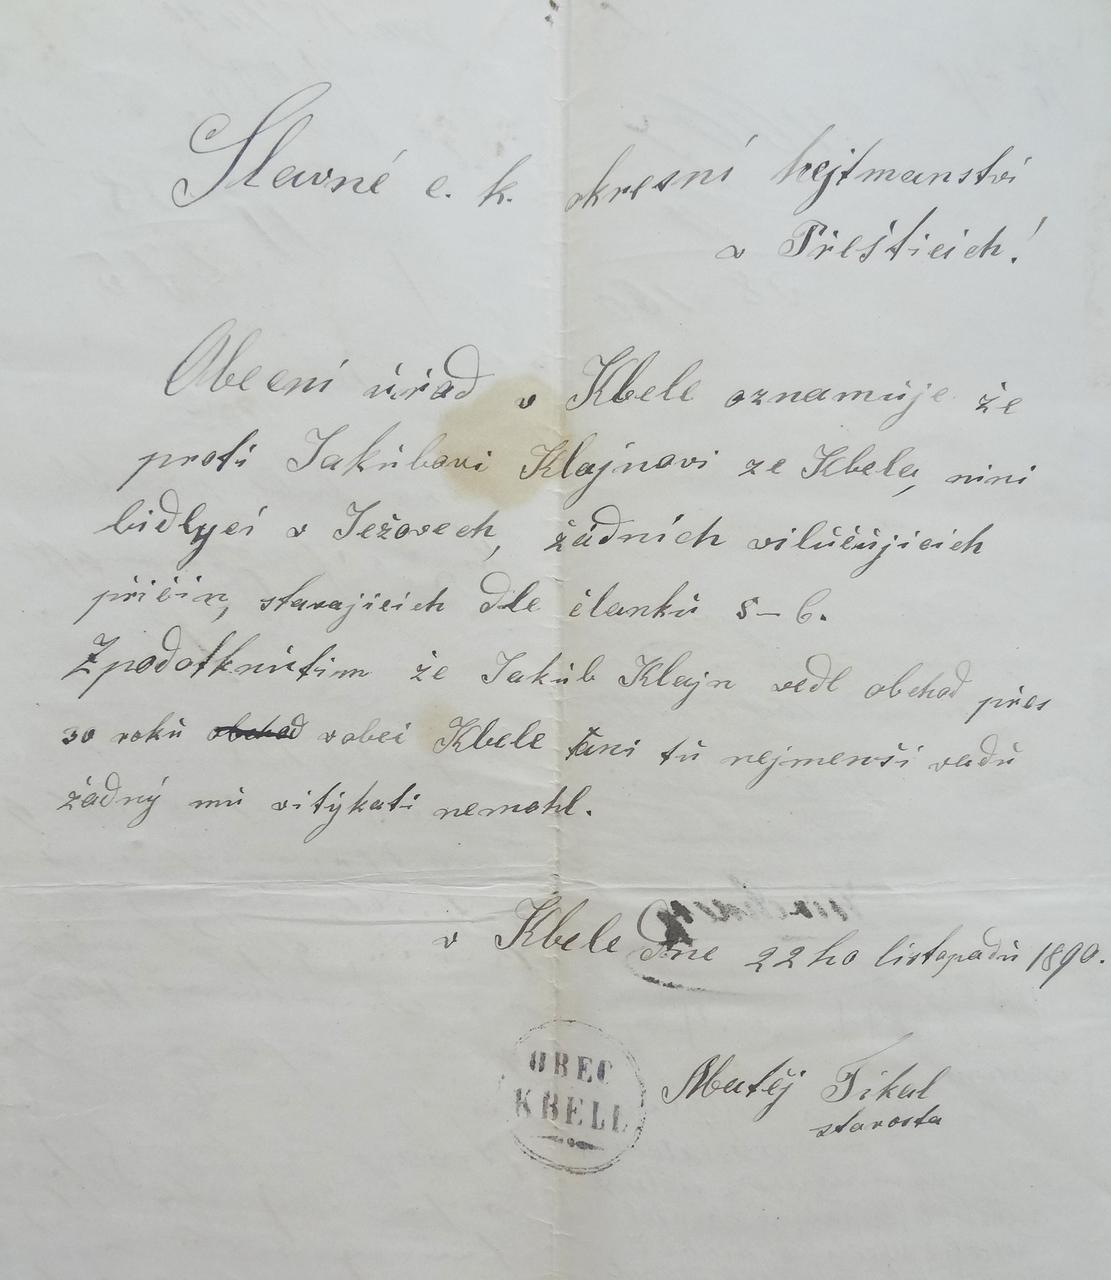 Slavné c. k. okresní hejtmanství
v Přešticích!
Obecní úřad v Kbele oznamuje že
proti Jakúbovi Klajnovi ze Kbela, niní
bidlycí v Ježovech, žádních vilúčújicich
přičin, stavajicich dle članků 5–6.
Zpodotknutim že Jakúb Klajn vedl obchod přes
30 roků v obci Kbele tani tú nejmenši vadů
žádný mů vitýkati nemohl.
v Kbele Dne 22ho listopadů 1890.
OBEC
KBELL
Matěj Tikal
starosta